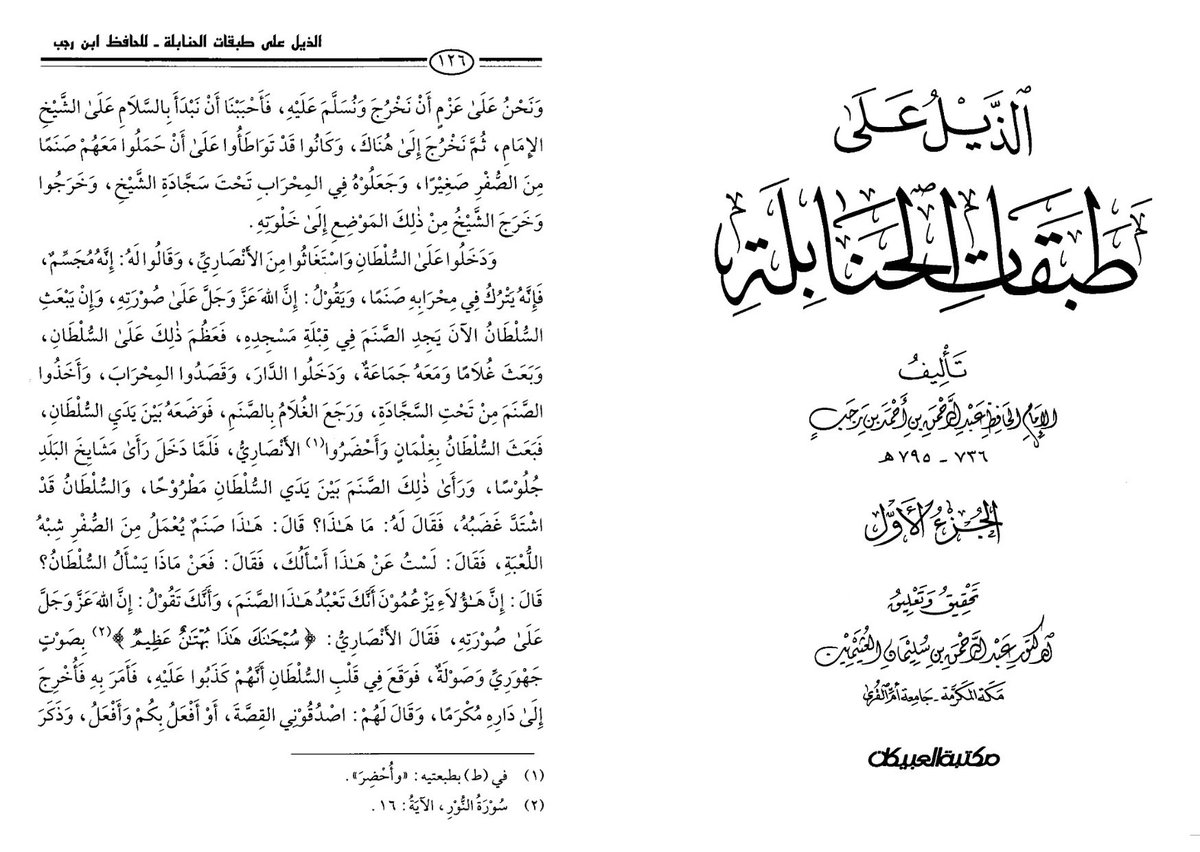 الذَّيْلُ عَلَى
طَبَقَاتِ الحَنَابِلَةِ
تَأْلِيفُ
الإِمَامِ الحَافِظِ عَبْدِ الرَّحْمٰنِ بْنِ أَحْمَدَ بْنِ رَجَبٍ
٧٣٦ - ٧٩٥ هـ
الجُزْءُ الأَوَّل
تَحْقِيقُ وَتَعْلِيقُ
الدكتور عَبْدِ الرَّحْمٰنِ بْنِ سُلَيْمَان العُثَيْمِين
مَكَّة المُكَرَّمَة - جَامِعَة أُمِّ القُرَى
مكتبة العبيكان
الذيل على طبقات الحنابلة - للحافظ ابن رجب
١٢٦
وَنَحْنُ عَلَىٰ عَزْمٍ أَنْ نَخْرُجَ وَنُسَلِّمَ عَلَيْهِ، فَأَحْبَبْنَا أَنْ نَبْدَأَ بِالسَّلَامِ عَلَىٰ الشَّيْخِ
الإِمَامِ، ثُمَّ نَخْرُجَ إِلَىٰ هُنَاكَ، وَكَانُوا قَدْ تَوَاطَأُوا عَلَىٰ أَنْ حَمَلُوا مَعَهُمْ صَنَمًا
مِنَ الصُّفْرِ صَغِيْرًا، وَجَعَلُوْهُ فِي المِحْرَابِ تَحْتَ سَجَّادَةِ الشَّيْخِ، وَخَرَجُوا
وَخَرَجَ الشَّيْخُ مِنْ ذٰلِكَ المَوْضِعِ إِلَىٰ خَلْوَتِهِ.
وَدَخَلُوا عَلَىٰ السُّلْطَانِ وَاسْتَغَاثُوا مِنَ الأَنْصَارِيِّ، وَقَالُوا لَهُ: إِنَّهُ مُجَسِّمٌ،
فَإِنَّهُ يَتْرُكُ فِي مِحْرَابِهِ صَنَمًا، وَيَقُوْلُ: إِنَّ اللهَ عَزَّ وَجَلَّ عَلَىٰ صُوْرَتِهِ، وَإِنْ يَبْعَثِ
السُّلْطَانُ الآنَ يَجِدِ الصَّنَمَ فِي قِبْلَةِ مَسْجِدِهِ، فَعَظُمَ ذٰلِكَ عَلَىٰ السُّلْطَانِ،
وَبَعَثَ غُلَامًا وَمَعَهُ جَمَاعَةٌ، وَدَخَلُوا الدَّارَ، وَقَصَدُوا المِحْرَابَ، وَأَخَذُوا
الصَّنَمَ مِنْ تَحْتِ السَّجَّادَةِ، وَرَجَعَ الغُلَامُ بِالصَّنَمِ، فَوَضَعَهُ بَيْنَ يَدَيِ السُّلْطَانِ،
فَبَعَثَ السُّلْطَانُ بِغِلْمَانٍ وَأَحْضَرُوا(١) الأَنْصَارِيُّ، فَلَمَّا دَخَلَ رَأَىٰ مَشَايِخَ البَلَدِ
جُلُوْسًا، وَرَأَىٰ ذٰلِكَ الصَّنَمَ بَيْنَ يَدَيِ السُّلْطَانِ مَطْرُوْحًا، وَالسُّلْطَانُ قَدْ
اشْتَدَّ غَضَبُهُ، فَقَالَ لَهُ: مَا هَـٰذَا؟ قَالَ: هَـٰذَا صَنَمٌ يُعْمَلُ مِنَ الصُّفْرِ شِبْهُ
اللُّعْبَةِ، فَقَالَ: لَسْتُ عَنْ هَـٰذَا أَسْأَلُكَ، فَقَالَ: فَعَنْ مَاذَا يَسْأَلُ السُّلْطَانُ؟
قَالَ: إِنَّ هَـٰؤُلَاءِ يَزْعُمُوْنَ أَنَّكَ تَعْبُدُ هَـٰذَا الصَّنَمَ، وَأَنَّكَ تَقُوْلُ: إِنَّ اللهَ عَزَّ وَجَلَّ
عَلَىٰ صُوْرَتِهِ، فَقَالَ الأَنْصَارِيُّ: ﴿سُبْحَـٰنَكَ هَـٰذَا بُهْتَـٰنٌ عَظِيمٌ﴾(٢) بِصَوْتٍ
جَهْوَرِيٍّ وَصَوْلَةٍ، فَوَقَعَ فِي قَلْبِ السُّلْطَانِ أَنَّهُمْ كَذَبُوا عَلَيْهِ، فَأَمَرَ بِهِ فَأُخْرِجَ
إِلَىٰ دَارِهِ مُكْرَمًا، وَقَالَ لَهُمْ: اصْدُقُوْنِي القِصَّةَ، أَوْ أَفْعَلُ بِكُمْ وَأَفْعَلُ، وَذَكَرَ
(١) في (ط) بطبعتيه: «وأُحْضِرَ».
(٢) سُوْرَةُ النُّوْرِ، الآيَةُ: ١٦.